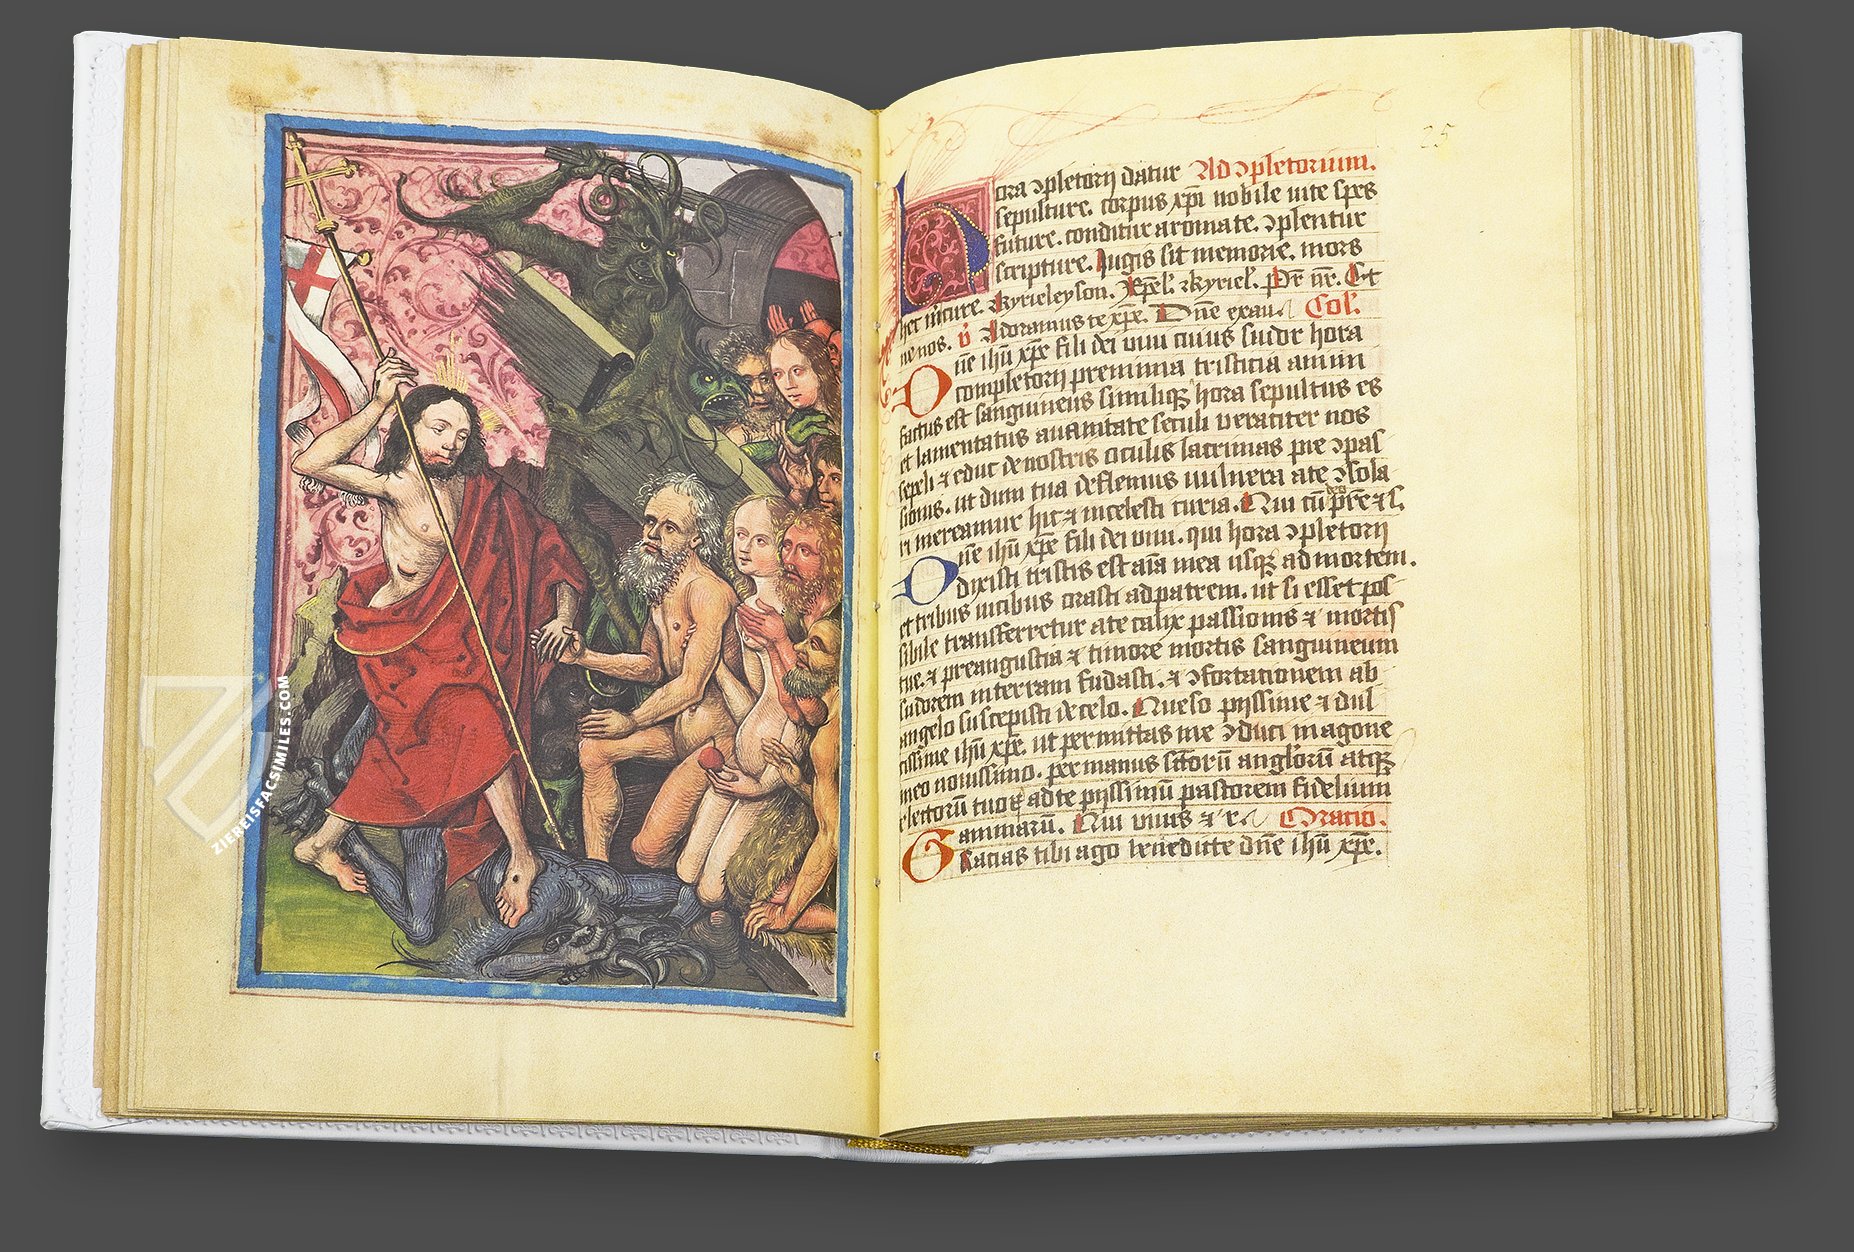 ZIEREISFACSIMILES.COM
25
Hora ꝯpletorij datur Ad ꝯpletorium.
sepulture. corpus xp̄i nobile uite spes
future. conditur aromate. ꝯplentur
scripture. Iugis sit memorie. mors
hec in cure. Kyrieleyson. Xp̄el. Kyriel. Pr̄ nr̄. Et
ne nos. v̓ Adoramus te xp̄e. Dn̄e exau Col̓.
Dn̄e ihū xp̄e fili dei uiui cuius sudor hora
completorij pre nimia tristicia animi
factus est sanguineus similiqꝫ hora sepultus es
et lamentatus
sepeli ⁊ educ de nostris oculis lacrimas pre ꝯpas
sionis. ut dum tua deflemus uulnera a te ꝯsola
ri mereamur hic ⁊ in celesti curia. Qui cū pr̄e ⁊ s.
Dn̄e ihū xp̄e fili dei uiui. qui hora ꝯpletorij
dixisti tristis est aīa mea usqꝫ ad mortem.
et tribus uicibus orasti ad patrem. ut si esset pos
sibile transferretur a te calix passionis ⁊ mortis
tue. ⁊ pre angustia ⁊ timore mortis sanguineum
sudorem in terram fudasti. ⁊ ꝯfortationem ab
angelo suscepisti de celo. Queso pijssime ⁊ dul
cissime ihū xp̄e. ut permittas me ꝯduci in agone
meo nouissimo. per manus sc̄torū anglorū atqꝫ
electorū tuoꝝ ad te pijssimū pastorem fidelium
animarū. Qui uiuis ⁊ r. Oratio.
Gracias tibi ago benedicte dn̄e ihū xp̄e.